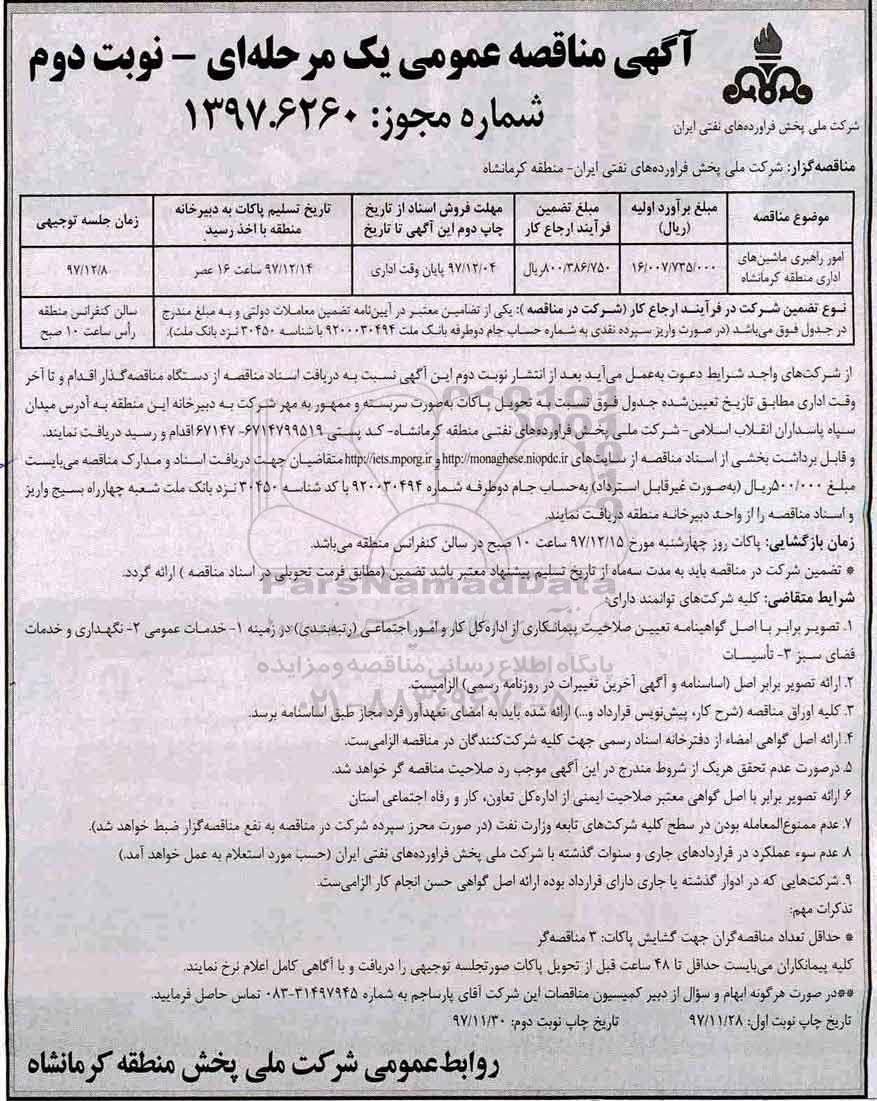 آگهی مناقصه عمومی یک مرحله‌ای - نوبت دوم
شماره مجوز: ۱۳۹۷.۶۲۶۰
شرکت ملی پخش فراورده‌های نفتی ایران
مناقصه‌گزار: شرکت ملی پخش فراورده‌های نفتی ایران- منطقه کرمانشاه
موضوع مناقصه
مبلغ برآورد اولیه (ریال)
مبلغ تضمین فرآیند ارجاع کار
مهلت فروش اسناد از تاریخ چاپ دوم این آگهی تا تاریخ
تاریخ تسلیم پاکات به دبیرخانه منطقه با اخذ رسید
زمان جلسه توجیهی
امور راهبری ماشین‌های اداری منطقه کرمانشاه
۱۶/۰۰۷/۷۳۵/۰۰۰
۸۰۰/۳۸۶/۷۵۰ریال
۹۷/۱۲/۰۴ پایان وقت اداری
۹۷/۱۲/۱۴ ساعت ۱۶ عصر
۹۷/۱۲/۸
نوع تضمین شرکت در فرآیند ارجاع کار (شرکت در مناقصه ): یکی از تضامین معتبر در آیین‌نامه تضمین معاملات دولتی و به مبلغ مندرج
در جدول فوق می‌باشد (در صورت واریز سپرده نقدی به شماره حساب جام دوطرفه بانک ملت ۹۲۰۰۰۳۰۴۹۴ با شناسه ۳۰۴۵۰ نزد بانک ملت).
سالن کنفرانس منطقه
رأس ساعت ۱۰ صبح
از شرکت‌های واجد شرایط دعوت به‌عمل می‌آید بعد از انتشار نوبت دوم این آگهی نسبت به دریافت اسناد مناقصه از دستگاه مناقصه‌گذار اقدام و تا آخر
وقت اداری مطابق تاریخ تعیین‌شده جدول فوق نسبت به تحویل پاکات به‌صورت سربسته و ممهور به مهر شرکت به دبیرخانه این منطقه به آدرس میدان
سپاه پاسداران انقلاب اسلامی- شرکت ملی پخش فراورده‌های نفتی منطقه کرمانشاه- کد پستی ۶۷۱۴۷۹۹۵۱۹- ۶۷۱۴۷ اقدام و رسید دریافت نمایند.
و قابل برداشت بخشی از اسناد مناقصه از سایت‌های http://monaghese.niopdc.ir و http://iets.mporg.ir متقاضیان جهت دریافت اسناد و مدارک مناقصه می‌بایست
مبلغ ۵۰۰/۰۰۰ریال (به‌صورت غیرقابل استرداد) به‌حساب جام دوطرفه شماره ۹۲۰۰۰۳۰۴۹۴ با کد شناسه ۳۰۴۵۰ نزد بانک ملت شعبه چهارراه بسیج واریز
و اسناد مناقصه را از واحد دبیرخانه منطقه دریافت نمایند.
زمان بازگشایی: پاکات روز چهارشنبه مورخ ۹۷/۱۲/۱۵ ساعت ۱۰ صبح در سالن کنفرانس منطقه می‌باشد.
* تضمین شرکت در مناقصه باید به مدت سه‌ماه از تاریخ تسلیم پیشنهاد معتبر باشد تضمین (مطابق فرمت تحویلی در اسناد مناقصه ) ارائه گردد.
شرایط متقاضی: کلیه شرکت‌های توانمند دارای:
۱. تصویر برابر با اصل گواهینامه تعیین صلاحیت پیمانکاری از اداره‌کل کار و امور اجتماعی (رتبه‌بندی) در زمینه ۱- خدمات عمومی ۲- نگهداری و خدمات
فضای سبز ۳- تأسیسات
۲. ارائه تصویر برابر اصل (اساسنامه و آگهی آخرین تغییرات در روزنامه رسمی) الزامیست.
۳. کلیه اوراق مناقصه (شرح کار، پیش‌نویس قرارداد و...) ارائه شده باید به امضای تعهدآور فرد مجاز طبق اساسنامه برسد.
۴. ارائه اصل گواهی امضاء از دفترخانه اسناد رسمی جهت کلیه شرکت‌کنندگان در مناقصه الزامی‌ست.
۵. درصورت عدم تحقق هریک از شروط مندرج در این آگهی موجب رد صلاحیت مناقصه گر خواهد شد.
۶. ارائه تصویر برابر با اصل گواهی معتبر صلاحیت ایمنی از اداره‌کل تعاون، کار و رفاه اجتماعی استان
۷. عدم ممنوع‌المعامله بودن در سطح کلیه شرکت‌های تابعه وزارت نفت (در صورت محرز سپرده شرکت در مناقصه به نفع مناقصه‌گزار ضبط خواهد شد).
۸. عدم سوء عملکرد در قراردادهای جاری و سنوات گذشته با شرکت ملی پخش فراورده‌های نفتی ایران (حسب مورد استعلام به عمل خواهد آمد.)
۹. شرکت‌هایی که در ادوار گذشته یا جاری دارای قرارداد بوده ارائه اصل گواهی حسن انجام کار الزامی‌ست.
تذکرات مهم:
* حداقل تعداد مناقصه‌گران جهت گشایش پاکات: ۳ مناقصه‌گر
کلیه پیمانکاران می‌بایست حداقل تا ۴۸ ساعت قبل از تحویل پاکات صورتجلسه توجیهی را دریافت و با آگاهی کامل اعلام نرخ نمایند.
**در صورت هرگونه ابهام و سؤال از دبیر کمیسیون مناقصات این شرکت آقای پارساجم به شماره ۳۱۴۹۷۹۴۵-۰۸۳ تماس حاصل فرمایید.
تاریخ چاپ نوبت اول: ۹۷/۱۱/۲۸ تاریخ چاپ نوبت دوم: ۹۷/۱۱/۳۰
روابط‌عمومی شرکت ملی پخش منطقه کرمانشاه
ParsNamadData
پایگاه اطلاع رسانی مناقصه و مزایده